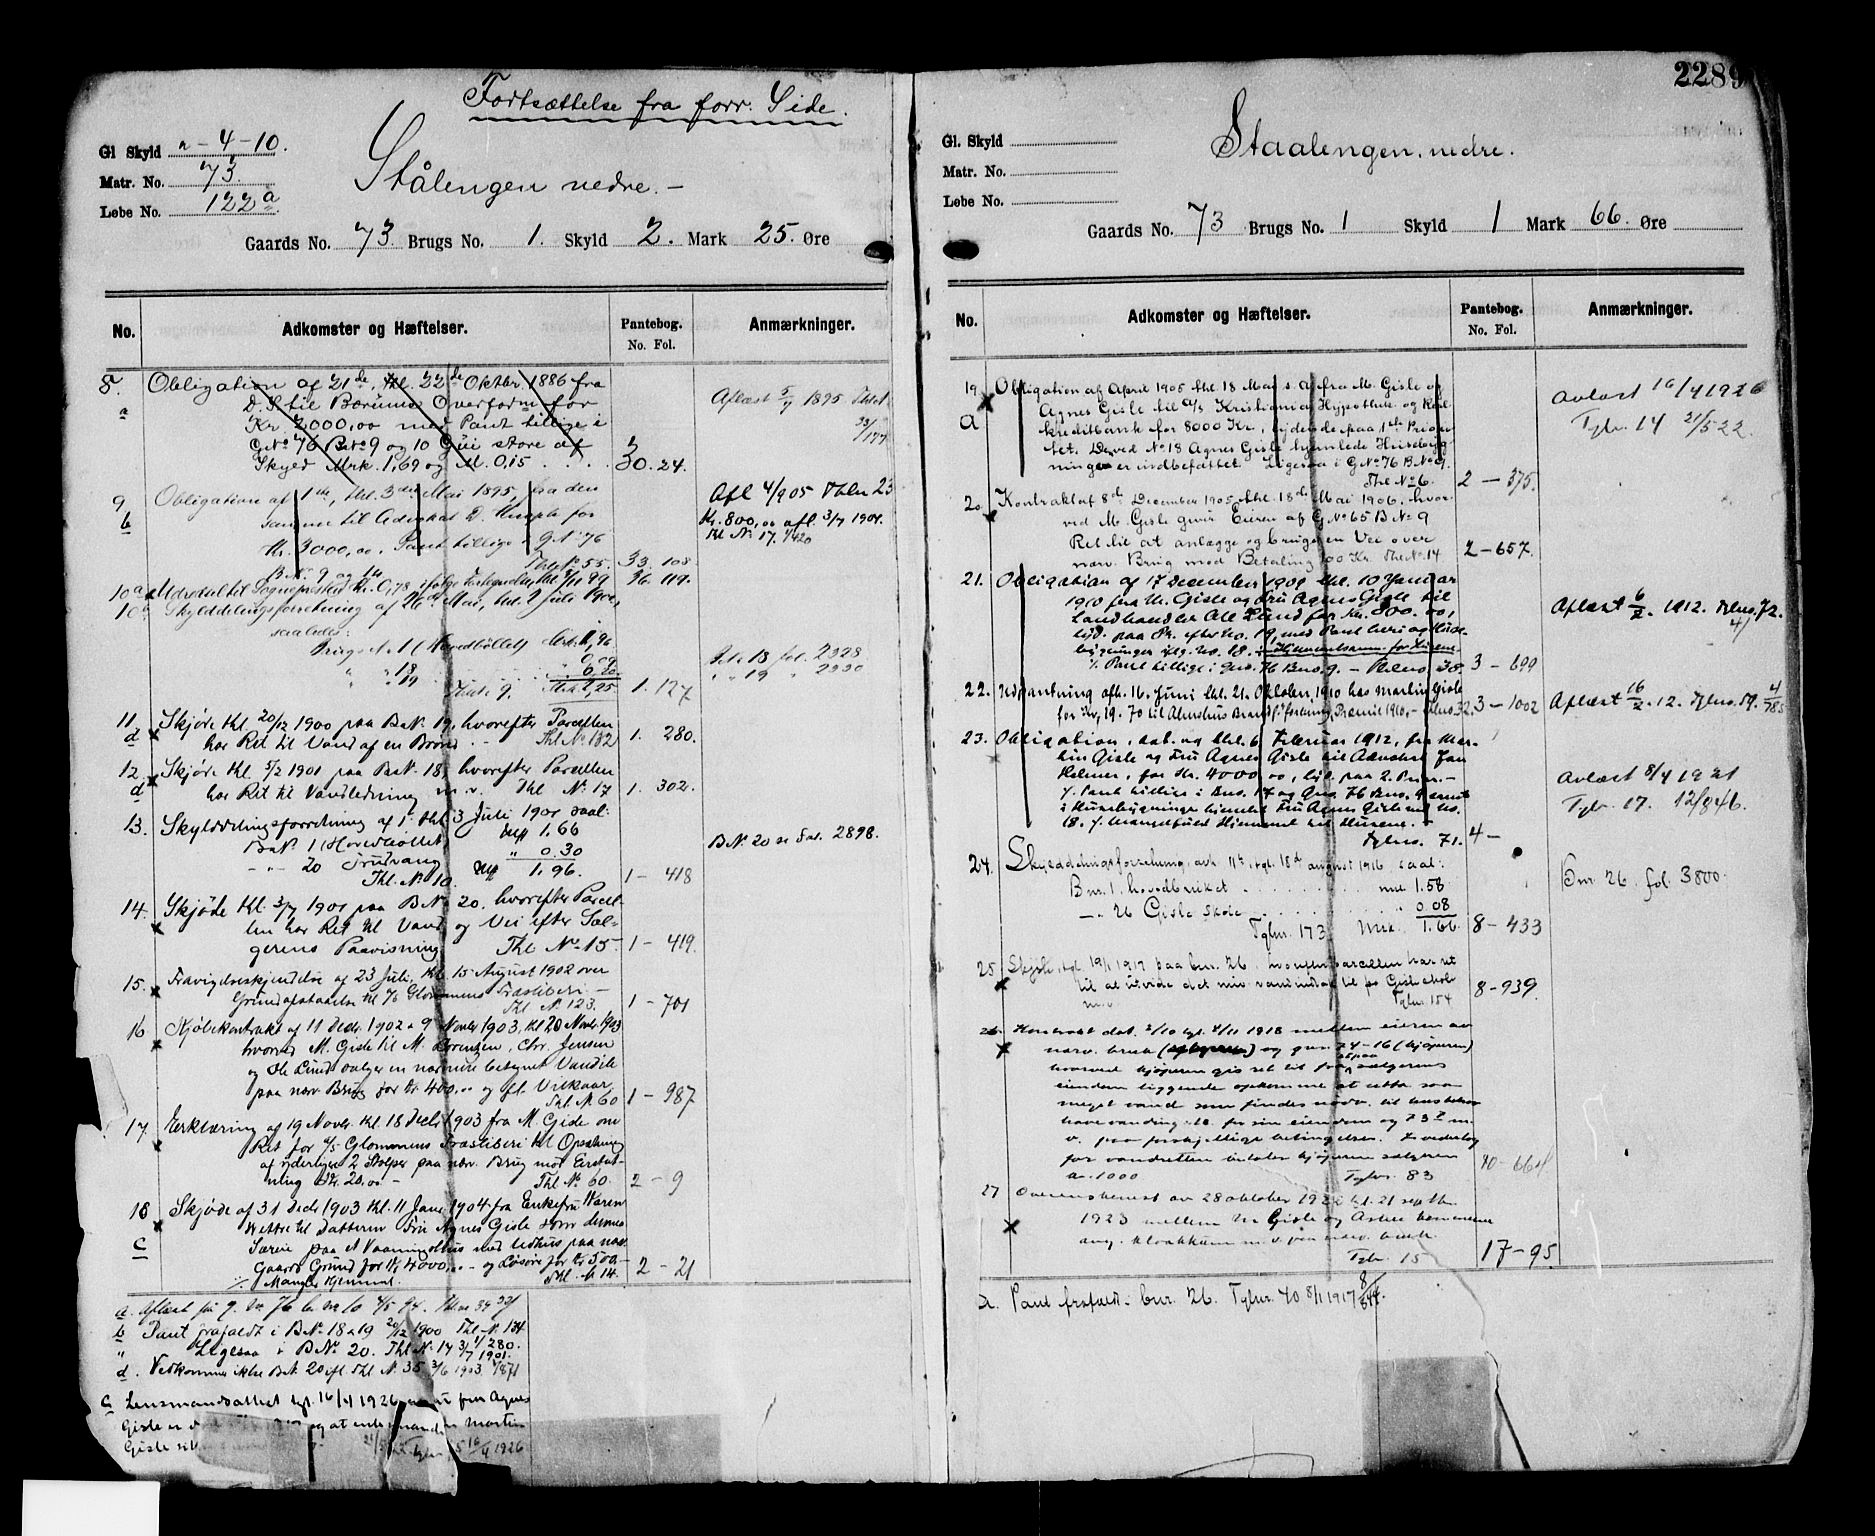 Fortsættelse fra forr. Side.
Gl Skyld a - 4 - 10.
Matr. No. 73.
Løbe No. 122 a
Stålengen nedre. -
Gaards No. 73. Brugs No. 1. Skyld 2. Mark 25. Øre
No. Adkomster og Hæftelser. Pantebog. No. Fol. Anmærkninger.
8. Obligation af 21de, thl. 22de Oktbr. 1886 fra
a D. S. til Bærums Overform. for
Kr. 2000,00 med Pant tillige i
G.No 76 B.No 9 og 10 Gui store af
Skyld Mrk. 1,69 og M. 0,15 . . . . 30. 24.
Aflæst 5/7 1895
9 Obligation af 1ste, thl. 3die Mai 1895, fra den
b samme til Advokat D. for
Kr. 3000,00. Pant tillige i G.No 76
B.No. 9 og 10 Thl. No 55. 33. 108
Afl 4/9 05 Thln 23
Kr. 800,00 afl. 3/7 1901.
Thl No. 17. 1/420
10a Udredsel til Sognepræsten Kr. 0,78 ifølge 99 36. 119.
10b Skylddelingsforretning af 26de Mai, thl. 2 Juli 1900,
saaledes:
Brugs No 1 (Hovedbøllet) Mrk. 1,96
" " 18 . . . 0,09
" " 19 . . . 0,20
Thl. No 9. Mrk 2,25 1. 127
No 18 fol. 2328
" " 19 " 2330
11. Skjøde thl. 20/12 1900 paa B.No. 19, hvorefter Parcellen
d har Ret til Vand af en Brønd . . Thl No 132 1. 280.
12. Skjøde thl. 5/2 1901 paa B.No. 18, hvorefter Parcellen
d har Ret til Vandledning m. v. Thl No. 17 1. 302.
13. Skylddelingsforretning af 1 thl. 3 Juli 1901 saal:
B.No. 1 (Hovedbøllet) Mrk 1.66
- " - 20 Frudvang " 0.30
Thl. No. 10. Mrk 1.96. 1 - 418
B.No. 20 se Fol. 2898.
14. Skjøde thl. 3/7 1901 paa B.No. 20. hvorefter Parcel-
len har Ret til Vand og Vei efter Sæl-
gerens Paavisning Thl No 15 - 1 - 419.
15. Fravigelseskjendelse af 23 Juli, thl. 15 August 1902 over
Grundafstaaelse til A/S Glommens Træsliberi -
Thl No. 123. 1 - 701
16 Kjøbekontrakt af 11 Decbr. 1902 & 9 Novbr 1903, thl 20 Novbr. 1903
hvorved M. Gisle til M. Lorenzen, Chr. Jensen
og Ole Lund sælger en nærmere betegnet Vandile
paa nærv. Brug for Kr 400,00 og fl. Vilkaar
Thl. No. 60 1 - 987
17. Erklæring af 19 Novbr. thl. 18 Decbr. 1903 fra M. Gisle om
Ret for A/S Glommens Træsliberi til Opsætning
af yderligere 2 Stolper paa nærv. Brug mod Erstat-
ning Kr. 20,00 - Thl No. 60. 2 - 9
18 Skjøde af 31 Decbr 1903 thl. 11 Januar 1904 fra Enkefru Karen
Wettre til Datteren Fru Agnes Gisle som dennes
c Særeie paa et Vaaningshus med Udhus paa nærv.
Gaards Grund for Kr 4000,00 - og Løsøre for Kr 500 -
./. Mangler Hjemmel. Thl. No 14. 2 - 21
a. Aflæst for g. No 76 b. No 10 4/5 94.
b Pant frafaldt i B.No. 18 & 19 20/12 1900 Thl. No. 134
" Ligesaa i B.No 20. Thl. No. 14 3/7 1901. 1/280.
d. Vedkommer ikke B.No. 20 ifl. Thl No. 35 3/6 1903
c Lensmandsattest tgl. 16/4 1926 at fru Agnes
Gisle er og at enkemanden Martin
Gisle 16/4 1926
2289
Gl. Skyld
Matr. No.
Løbe No.
Staalengen, nedre.
Gaards No. 73 Brugs No. 1 Skyld 1 Mark 66. Øre
No. Adkomster og Hæftelser. Pantebog. No. Fol. Anmærkninger.
19. Obligation af April 1905 thl 18 Mai s. A. fra M. Gisle og
a Agnes Gisle til A/S Kristiania Hypothek og Real-
kreditbank for 8000 Kr., lydende paa 1ste Priori-
tet. Derved No 18 Agnes Gisle hjemlede Husebyg-
ninger er indbefattet. Ligesaa i G.No 76 B.No 9.
Thl. No 6. 2 - 375.
Avlæst 16/4 1926
Tgbr. 14 21/522
20. Kontrakt af 8de December 1905, thl. 18de Mai 1906, hvor-
ved M. Gisle giver Eieren af G.No 65 B.No 9
Ret til at anlægge og bruge en Vei over
nærv. Brug mod Betaling 100 Kr. Thl. No. 14 2 - 657.
21. Obligation af 17 December 1909 thl. 10 Januar
1910 fra M. Gisle og Fru Agnes Gisle til
Landhandler Ole Lund for Kr. 800.00,
lyd. paa Pr. efter No. 19, med Pant heri og Hus-
bygninger ifg. No. 18. - Hjemmelsanm. for Husene
./. Pant tillige i Gno. 76 Bno. 9. - Thlno. 38. 3 - 699
Aflæst 6/2. 1912. Tglno. 72.
22. Udpantning afh. 16. Juni thl. 21. Oktober 1910 hos Martin Gisle
for Kr. 19.70 til Almshus Brandf. forening, Præmie 1910. - thlno 32. 3 - 1002
Aflæst 16/2. 12. Tglno. 4/785
23. Obligation, dat. og thl. 6. Februar 1912, fra Mar-
tin Gisle og Fru Agnes Gisle til Advokat Jan
Helmer, for Kr. 4000.00, lyd. paa 2. Prior. -
./. Pant tillige i Bno. 17 og Gno. 76 Bno. 9 samt
i Husebygninger hjemlet Fru Agnes Gisle ved No.
18. ./. Mangelfuld Hjemmel til Husene. -
Tglno. 71. 4 -
Avlæst 8/4 1921
Tgbr. 17. 12/846.
24. Skylddelingsforretning avh. 11te, tgl. 18de august 1916, saal:
Bnr. 1. hovedbruket . . . . mrk 1.58
- " - 26 Gisle skole . . . . " 0.08
Tglnr. 173 Mrk. 1.66. 8 - 433
Bnr. 26. fol. 3800.
25 Skjøte, tgl. 19/1 1917 paa bnr. 26, hvorefter parcellen har ret
til at utvide det nuv. vandindtak til for Gisle skole
m.v. Tglnr. 154 8 - 939.
26. Kontrakt dat. 2/10 tgl. 4/11 1918 mellem eieren av
nærv. bruk og gnr. 74-16 (kjøperen)
hvorved kjøperen gis ret til fra paa sælgerens
eiendom liggende opkomme at utta saa
meget vand som findes nødv. til husbehov
havevanding etc. for sin eiendom og 73/7 m.
v. paa forskjellige betingelser. I vederlag
for vandretten betaler kjøperen sælgeren
kr. 1000 Tglnr. 83 10 - 664
27 Overenskomst av 28 oktober 1922 tgl. 21 septb.
1923 mellem M. Gisle og Asker kommune
ang. kloakkum m.v. paa nærv. bruk.
Tgbr. 15 17 - 95.
a. Pant frafaldt i bnr. 26. Tglnr. 40 8/1 1917